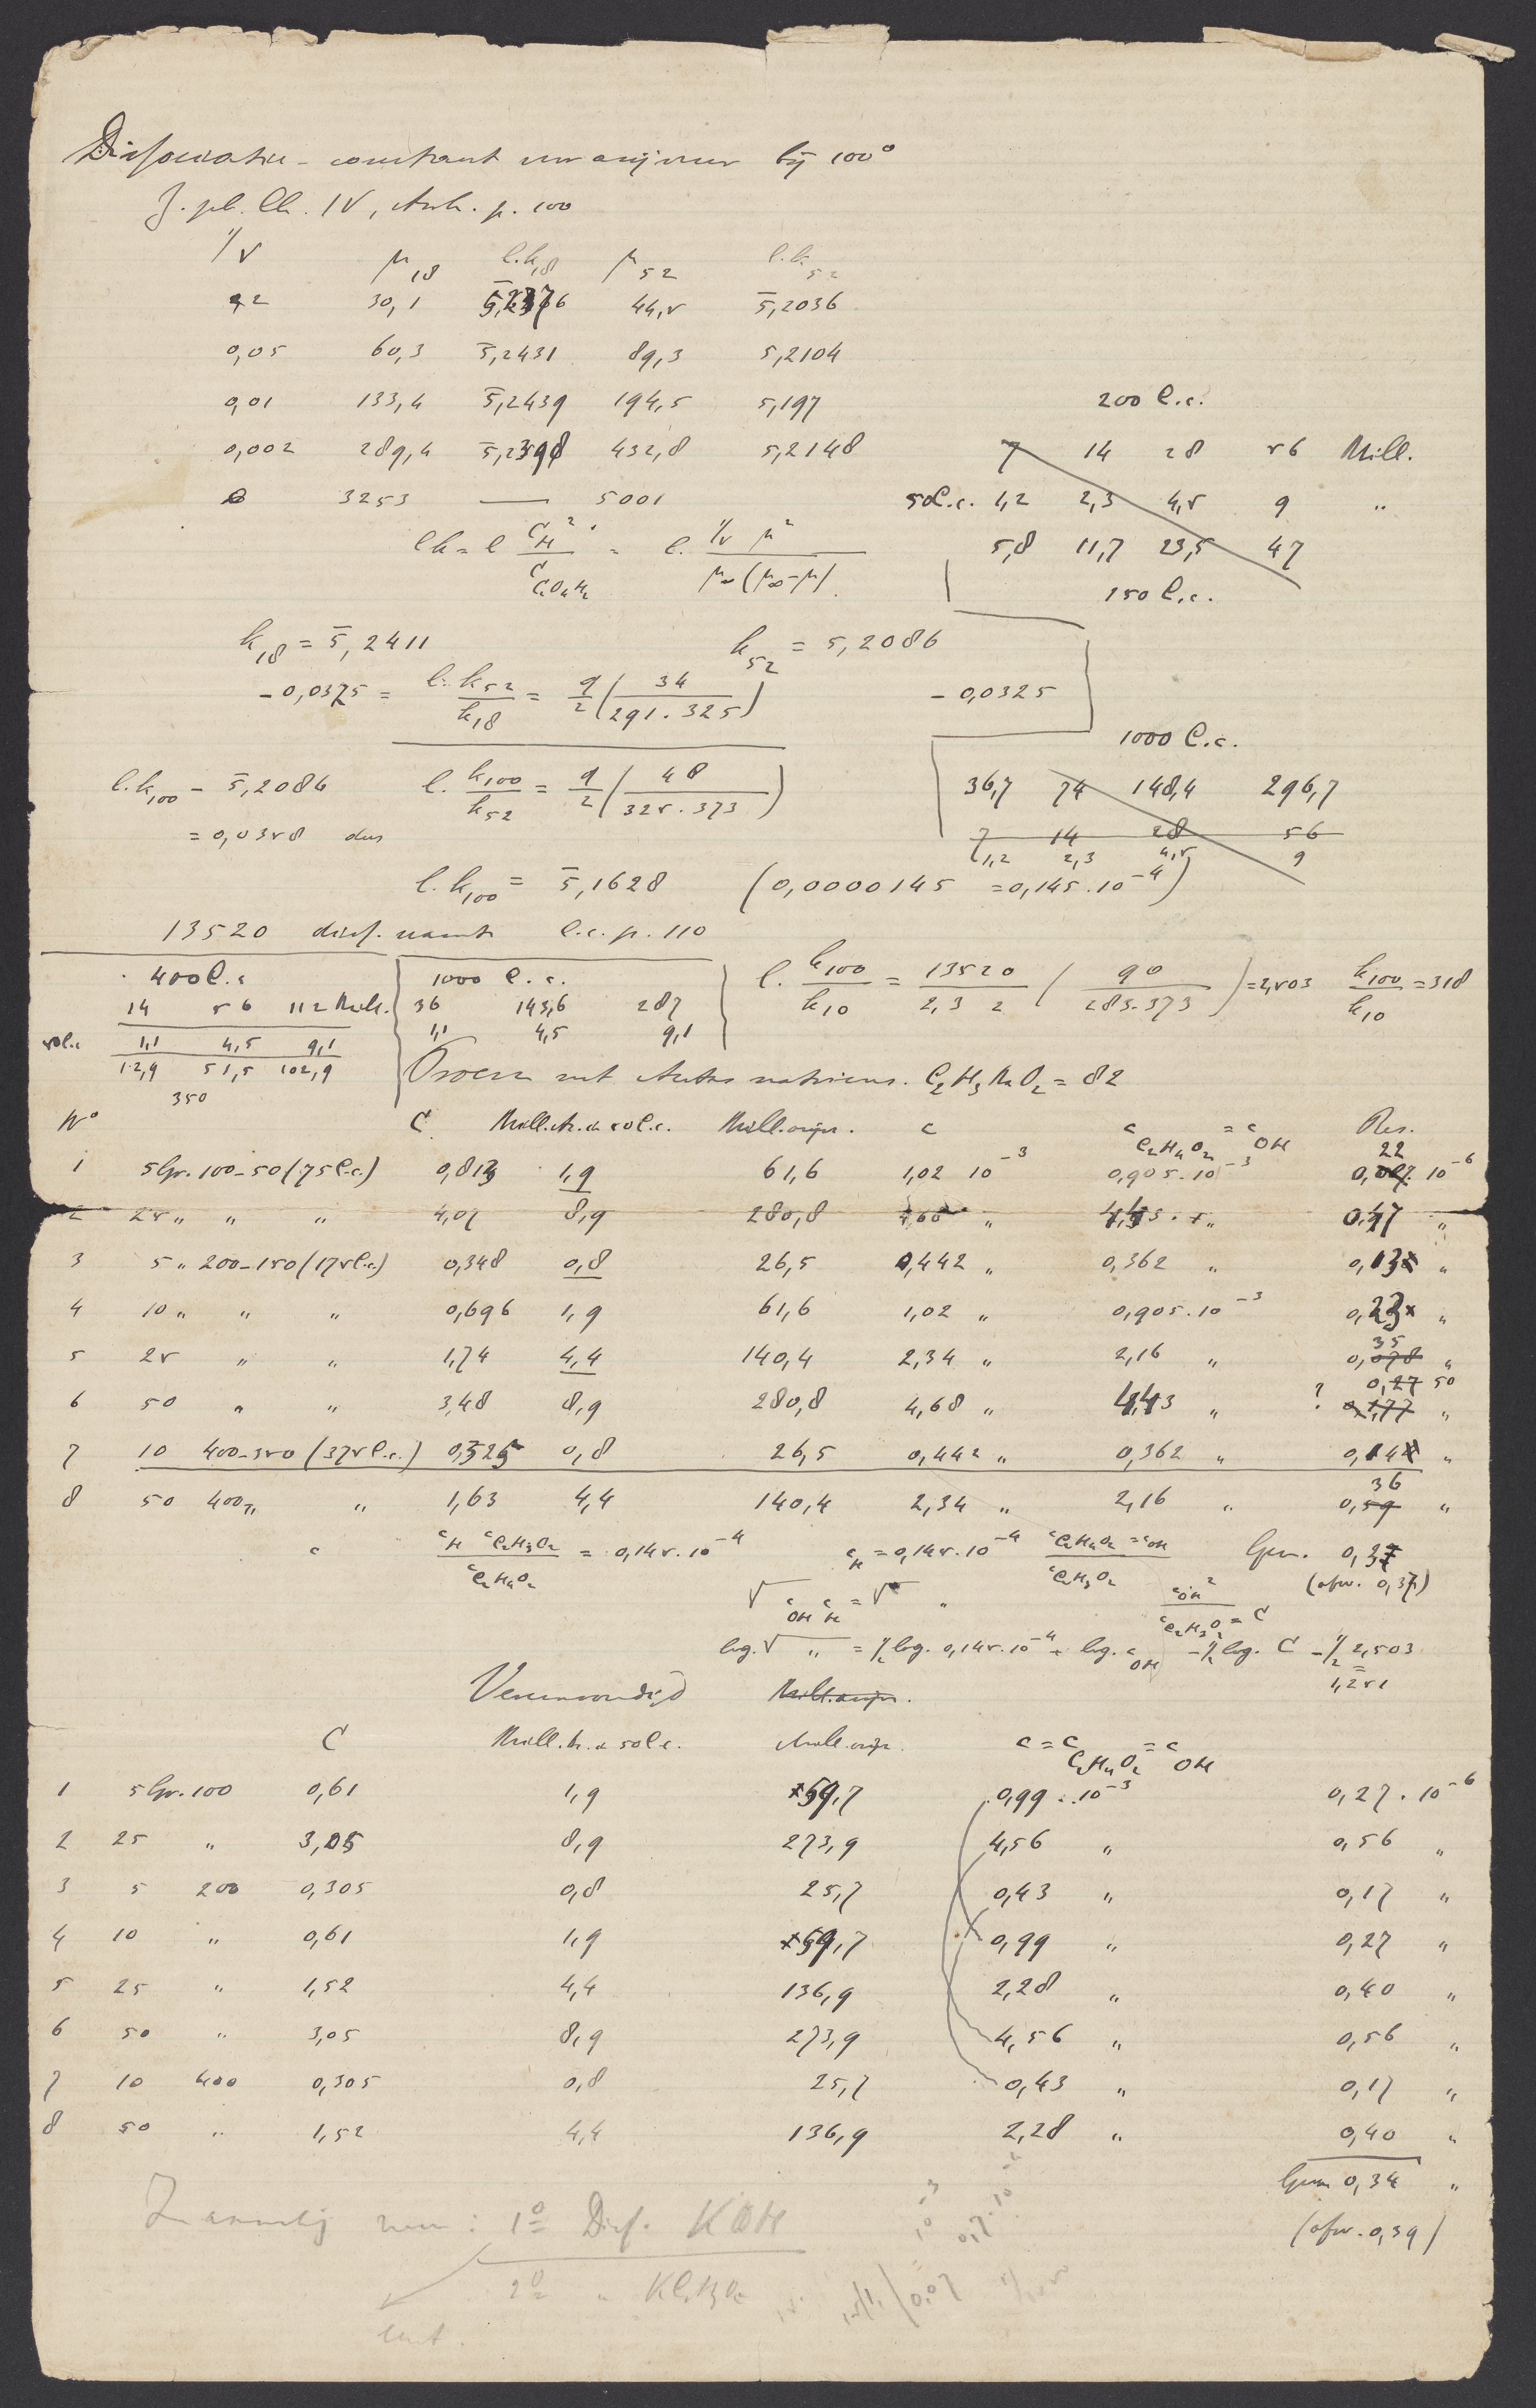 Dissociatie-constant van azijnzuur bij 100°
Z. ph. Ch. IV, Arrh. p. 100
1/v μ18 l.k18 μ52 l.k52
0,2 30,1 44,5 5̄,2036
0,05 60,3 5̄,2431 89,3 5,2104
0,01 133,4 5̄,2439 194,5 5,197
0,002 289,4 5̄,2398 432,8 5,2148
0 3253 — 5001
200 C.c.
7 14 28 56 Mill.
50 C.c. 1,2 2,3 4,5 9 "
5,8 11,7 23,5 47
150 C.c.
lk = l C_H² / C_C2O2H4 = l. 1/v μ² / μ∞(μ∞-μ)
k18 = 5̄,2411 k52 = 5,2086
-0,0325 = l. k52/k18 = q/2 (34 / 291.325) -0,0325
1000 C.c.
36,7 74 148,4 296,7
7 14 28 56
1,2 2,3 4,5 9
l.k100 - 5̄,2086 l. k100/k52 = q/2 (48 / 325.373)
= 0,0358 dus
l.k100 = 5̄,1628 (0,0000145 = 0,145.10⁻⁴)
13520 diss. warmte l.c. p. 110
400 C.c
14 56 112 Mill.
50 C.c 1,1 4,5 9,1
12,9 51,5 102,9
350
1000 C.c.
36 143,6 287
1,1 4,5 9,1
l. k100/k10 = 13520 / 2,3 2 (90 / 283.373) = 2,503 k100/k10 = 318
Proeven met Acetas natricus. C2H3NaO2 = 82
N° C Mill.N.in 50 C.c. Mill.azijn. c c_C2H4O2 = c_OH Res.
1 5 Gr. 100-50 (75 C.c.) 0,813 1,9 61,6 1,02 10⁻³ 0,905.10⁻³ 0,22 10⁻⁶
2 25 " " " 4,07 8,9 280,8 4,68 " 0,47 "
3 5 " 200-150 (175 C.c.) 0,348 0,8 26,5 0,442 " 0,362 " 0,13 "
4 10 " " " 0,696 1,9 61,6 1,02 " 0,905.10⁻³ 0,23 "
5 25 " " 1,74 4,4 140,4 2,34 " 2,16 " 0,35 "
6 50 " " 3,48 8,9 280,8 4,68 " 4,43 " ? 0,50 "
7 10 400-350 (375 C.c.) 0,325 0,8 26,5 0,442 " 0,362 " 0,14 "
8 50 400 " " 1,63 4,4 140,4 2,34 " 2,16 " 0,36 "
c_H c_C2H3O2 / c_C2H4O2 = 0,145.10⁻⁴ c_H = 0,145.10⁻⁴ c_C2H4O2 = c_OH / c_C2H3O2 Gem. 0,37
√c_OH c_H = √ " c_OH² / c_C2H3O2 = C (afw. 0,37)
log.√ " = ½ log. 0,145.10⁻⁴ + log. c_OH - ½ log. C - ½ 2,503
1,251
Vereenvoudigd Mill.azijn.
C Mill.N.in 50 C.c. Mill.azijn. c = c_C2H4O2 = c_OH
1 5 Gr. 100 0,61 1,9 59,7 0,99.10⁻³ 0,27.10⁻⁶
2 25 " 3,05 8,9 273,9 4,56 " 0,56 "
3 5 200 0,305 0,8 25,7 0,43 " 0,17 "
4 10 " 0,61 1,9 59,7 0,99 " 0,27 "
5 25 " 1,52 4,4 136,9 2,28 " 0,40 "
6 50 " 3,05 8,9 273,9 4,56 " 0,56 "
7 10 400 0,305 0,8 25,7 0,43 " 0,17 "
8 50 " 1,52 4,4 136,9 2,28 " 0,40 "
Gem 0,34 "
(afw. 0,39)
1° Diss. KOH
2° "